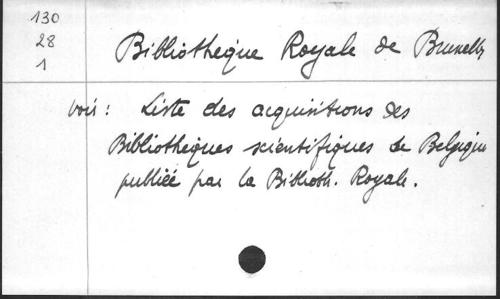 130
28
1
Bibliotheque Royale de Bruxelles
voir : Liste des acquisitions des
Bibliothèques scientifiques de Belgique
publiée par la Biblioth. Royale.